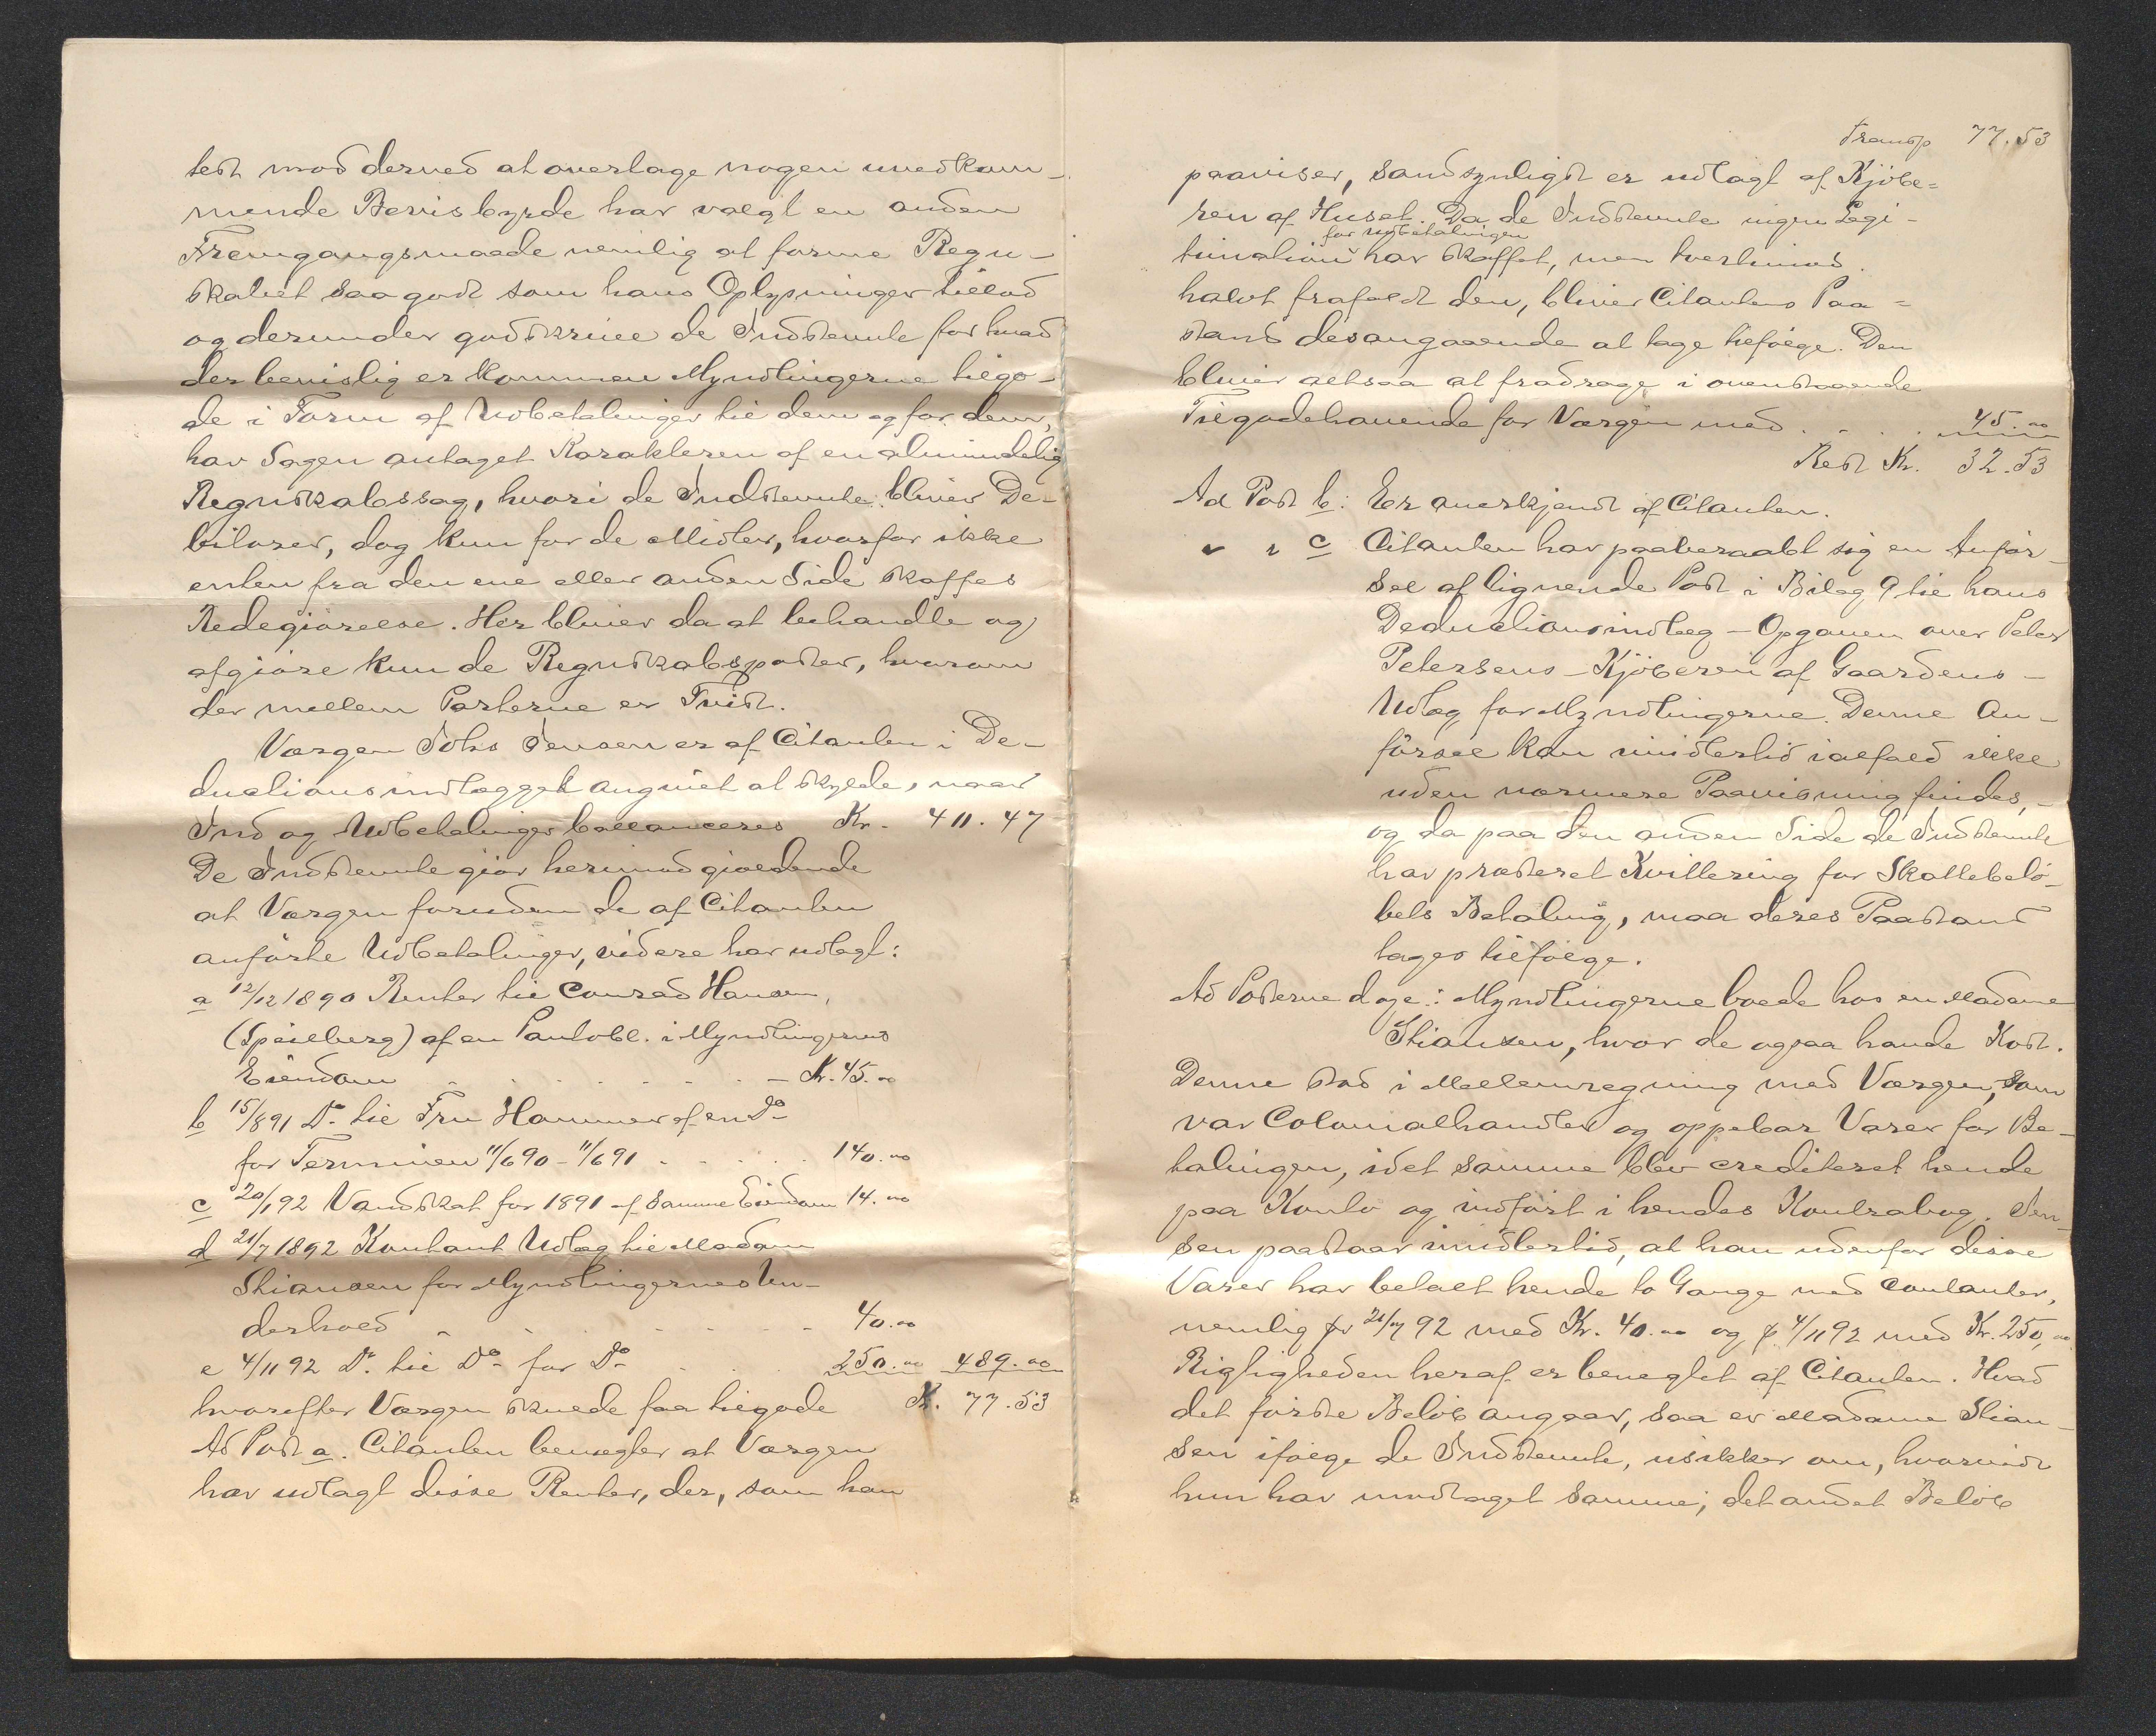 test mod derved at overtage nogen uvedkom-
mende Bevisbyrde har valgt en anden
Fremgangsmaade nemlig at forme Regn-
skabet saa godt som hans Oplysninger tillod
og derunder godtskrive de Indstevnte for hvad
der bevislig er kommen Myndlingerne tilgo-
de i Form af Udbetalinger til dem og for dem,
har Sagen antaget Karakteren af en almindelig
Regnskabssag, hvori de Indstevnte bliver De-
bitorer, dog kun for de Midler, hvorfor ikke
enten fra den ene eller anden Side skaffes
Redegjörelse. Her bliver da at behandle og
afgjöre kun de Regnskabsposter, hvorom
der mellem Parterne er Tvist.
Vergen Johs Jensen er af Citanten i De-
duktionsindlægget angivet at skylde, naar
Ind og Udbetalinger ballanceres Kr. 411.47
De Indstevnte gjör herimod gjældende
at Vergen foruden de af Citanten
anförte Udbetalinger, videre har udlagt:
a 12/12 1890 Renter til Conrad Hansen,
(Speilberg) af en Pantobl. i Myndlingernes
Eiendom - . . . . . - Kr. 45.00
b 15/891 Do til Fru Hammer af en Do
for Terminen 11/690 - 11/691 . . . . 140.00
c 20/192 Vandskat for 1891 af samme Eiendom 14.00
d 21/7 1892 Kontant Udlag til Madam
Stiansen for Myndlingernes Un-
derhold - - - - - - 40.00
e 4/11 92 Do til Do for Do . . . 250.00 489.00
hvorefter Vergen skulde faa tilgode Kr. 77.53
Ad Post a. Citanten benegter at Vergen
har udlagt disse Renter, der, som han
Transp 77.53
paaviser, sandsynligst er udlagt af Kjöbe=
ren af Huset. Da de Indstevnte ingen Legi-
for Udbetalingen
timation har skaffet, men tvertimod
halvt frafaldt den, bliver Citantens Paa=
stand desangaaende at tage tilfölge. Den
bliver altsaa at fradrage i ovenstaaende
Tilgodehavende for Vergen med . . . . 45.00
Rest Kr. 32.53
Ad Post b: Er anerkjendt af Citanten.
" " c Citanten har paaberaabt sig en Anför-
sel af lignende Post i Bilag 9 til hans
Deduktionsindlæg - Opgaven over Peder
Petersens - Kjöberen af Gaardens -
Udlæg for Myndlingerne. Denne An-
försel kan imidlertid ialfald ikke
uden nærmere Paavisning findes,-
og da paa den anden Side de Indstevnte
har præsteret Kvittering for Skattebelö-
bets Betaling, maa deres Paastand
tages tilfölge.
Ad Posterne d og e: Myndlingerne boede hos en Madame
Stiansen, hvor de ogsaa havde Kost.
Denne stod i Mellemregning med Vergen, som
var Colonialhandler og oppebar Varer for Be-
talingen, idet samme blev crediteret hende
paa Konto og indfört i hendes Kontrabog. Jen-
sen paastaar imidlertid, at han udenfor disse
Varer har betalt hende to Gange med contanter,
nemlig pr 21/7 92 med Kr. 40.00 og pr 4/11 92 med Kr. 250,00
Rigtigheden heraf er beneglet af Citanten. Hvad
det förste Belöb angaar, saa er Madame Stian-
sen ifölge de Indstevnte, usikker om, hvorvidt
hun har modtaget samme; det andet Belöb